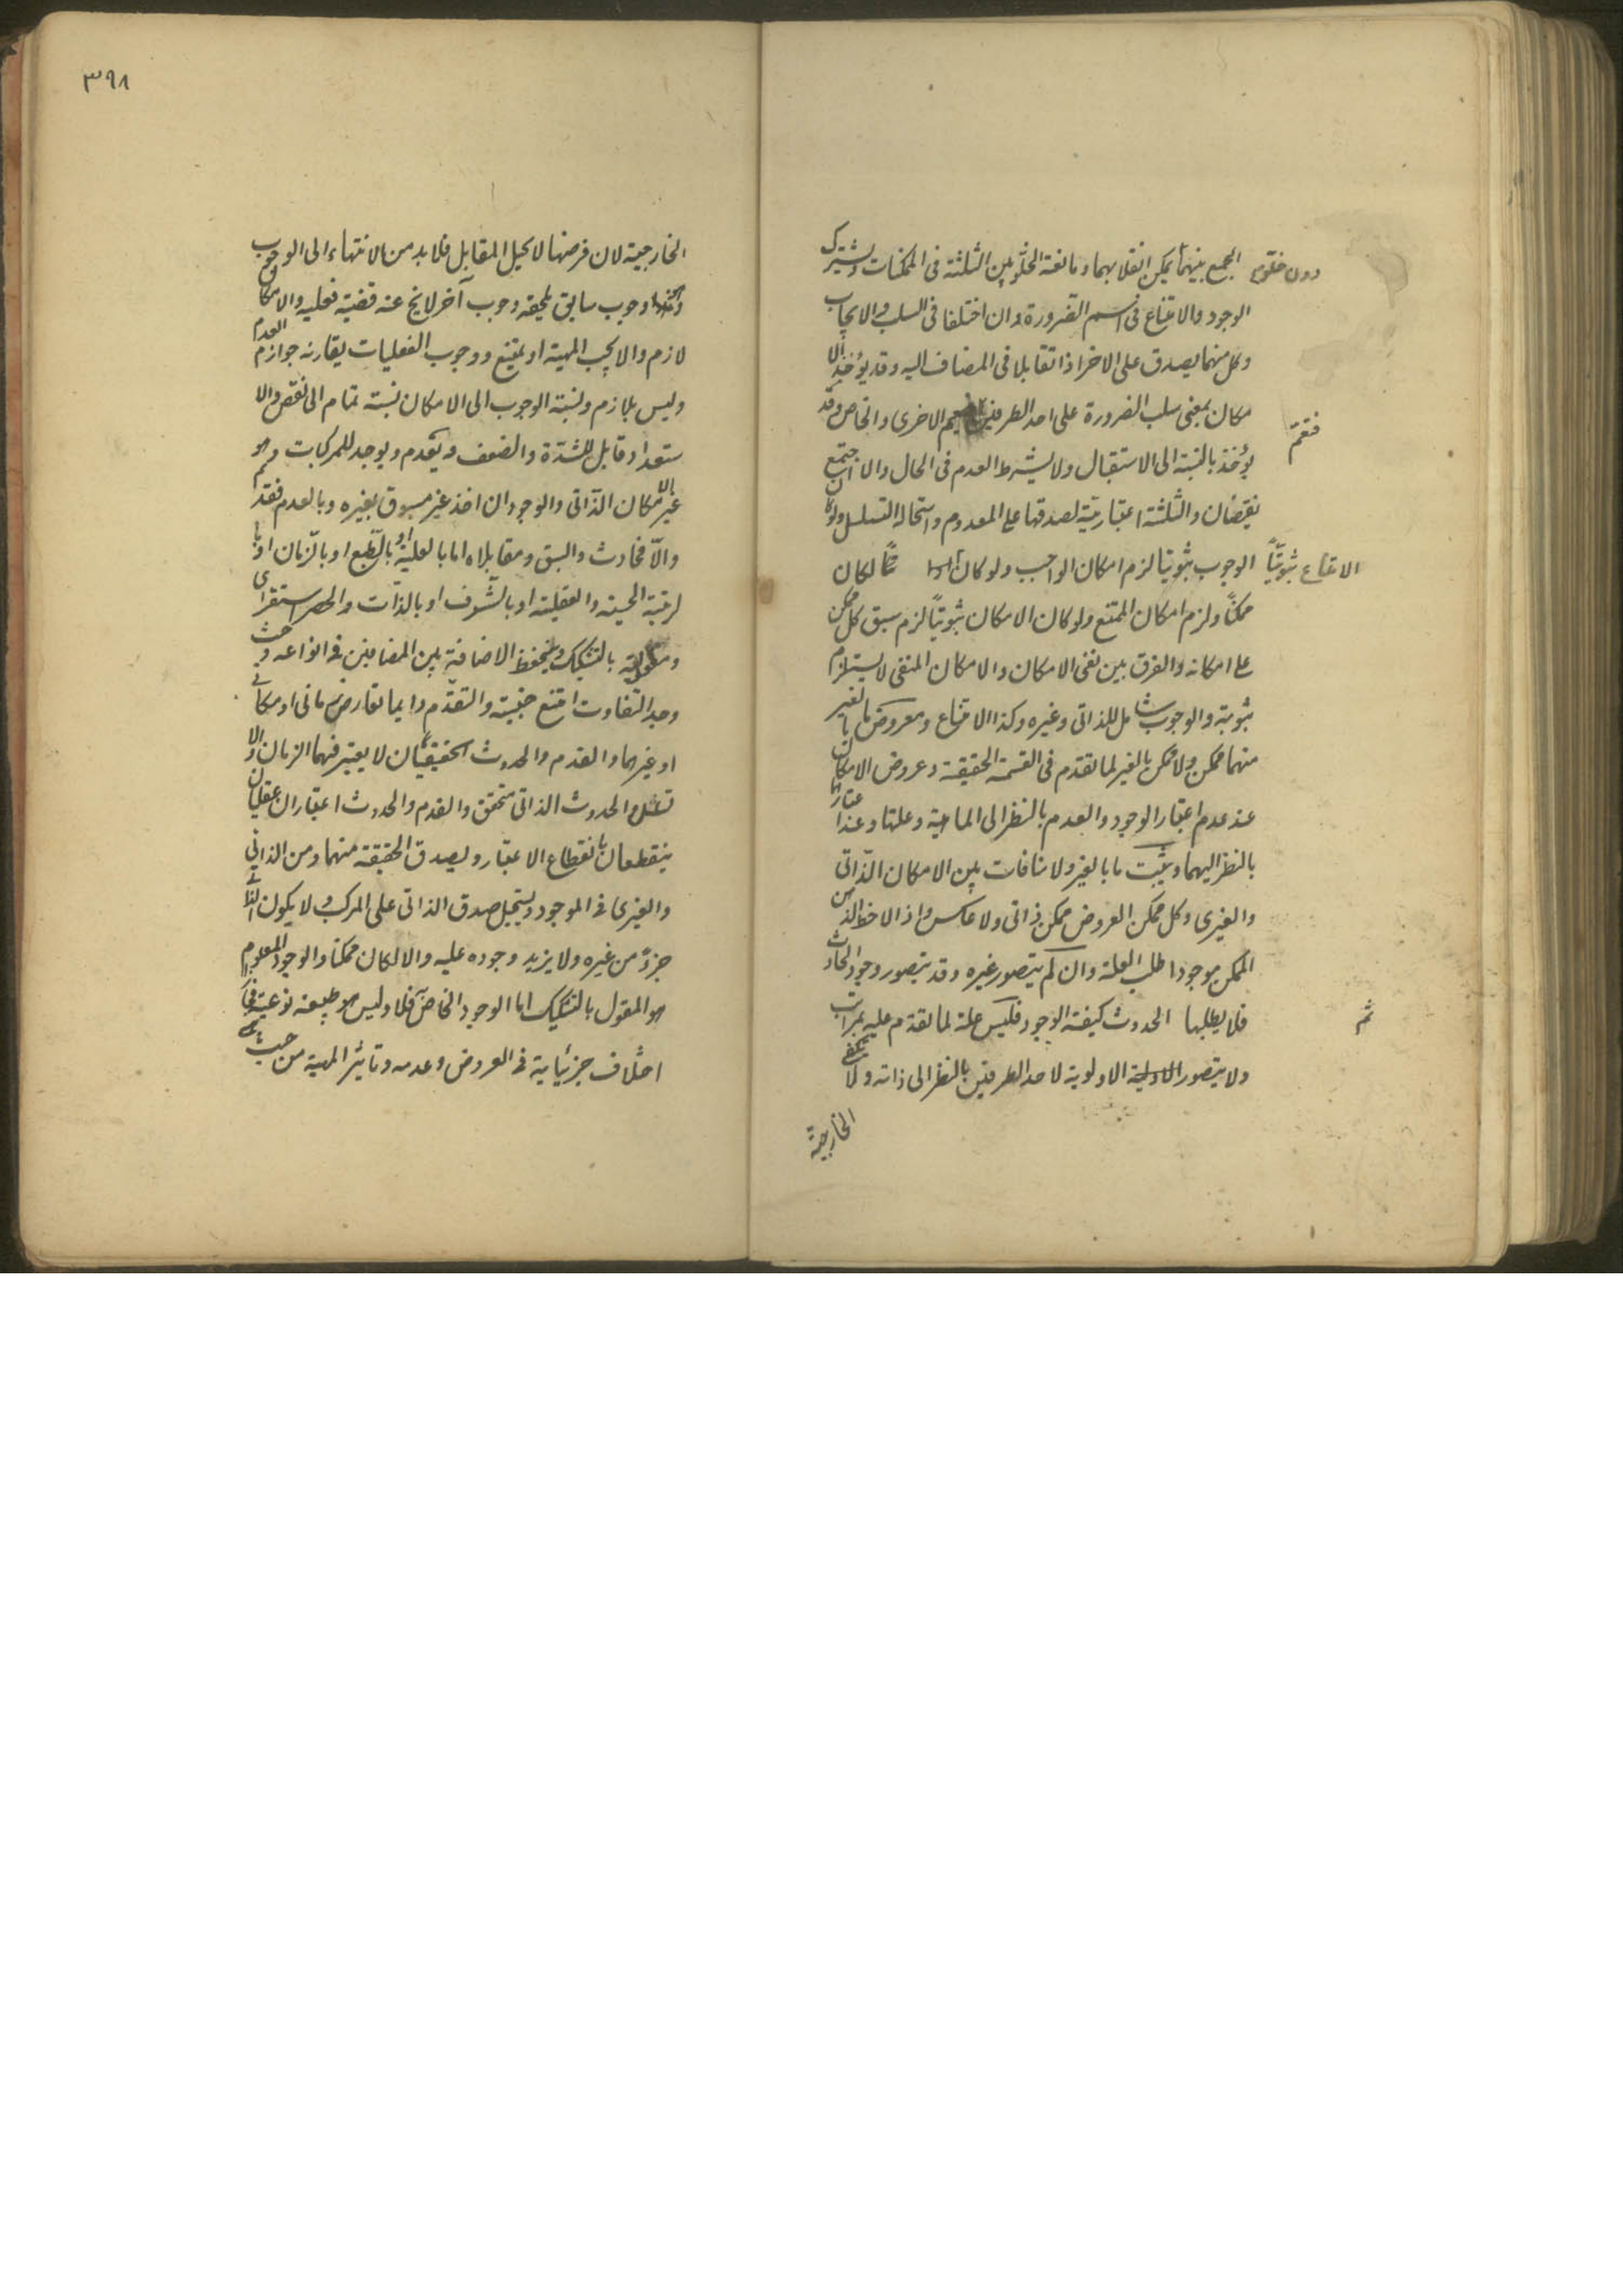 الجمع بينهما يمكن انقلابهما ومانعة الخلو بين الثلثة فى الممكنات ويشترك
دون خلوّه
الوجود والامتناع فى اسم الضرورة وان اختلفا فى السلب والايجاب
وكل منهما يصدق على الاخر اذا تقابلا فى المضاف اليه وقد يؤخذ الا
مكان بمعنى سلب الضرورة على احد الطرفين الاخرى والخاص وقد
فتعمّ
يؤخذ بالنسبة الى الاستقبال ولا يشترط العدم فى الحال والا اجتمع
نقيضان والثلثة اعتبارية لصدقها على المعدوم واستحالة التسلسل ولو كان
الوجوب ثبوتيا لزم امكان الواجب ولو كان لكان
الامتناع ثبوتيّاً
ممكناً ولزم امكان الممتنع ولو كان الامكان ثبوتياً لزم سبق كل ممكن
على امكانه والفرق بين نفى الامكان والامكان المنفى لا يستلزم
ثبوته والوجوب شامل للذاتى وغيره وكذا الامتناع ومعروض ما بالغير
منهما ممكن ولا ممكن بالغير لما تقدم فى القسمة الحقيقة وعروض الامكان
عند عدم اعتبار الوجود والعدم بالنظر الى الماهية وعلتها وعند اعتبارهما
بالنظر اليهما ويثبت ما بالغير ولا منافات بين الامكان الذّاتى
والغيرى وكل ممكن العروض ممكن ذاتى ولا عكس واذا لاحظ الذهن
الممكن موجودا طلب العلة وان لم يتصور غيره وقد يتصور وجود الحادث
فلا يطلبها الحدوث كيفية الوجود فليس علة لما تقدم عليه بمراتب
ثم
ولا يتصور الاولوية لاحد الطرفين بالنظر الى ذاته ولا يكفى
الخارجية
٣٩٨
الخارجية لان فرضها لا يحيل المقابل فلا بد من الانتهاء الى الوجوب
وهو وجوب سابق يلحقه وجوب آخر لا يخ عنه قضية فعليه والامكان
لازم والا يجب المهية او يمتنع ووجوب الفعليات يقارنه جواز العدم
وليس بلازم ونسبة الوجوب الى الامكان نسبة تمام الى نقص والا
ستعداد قابل للشدّة والضعف ويعدم ويوجد للمركبات وهو
غير الامكان الذّاتى والوجود ان اخذ غير مسبوق بغيره وبالعدم فقديم
والاّ فحادث والسبق ومقابلاه اما بالعلية او بالطّبع او بالزّمان او با
لرتبة الحسية والعقلية او بالشّرف او بالذّات والحصر استقرائى
ومقوليته بالتشكيك وينحفظ الاضافة بين المضافين فى انواعه وحيث
وجد التفاوت امتنع جنسيته والتقدّم دايما لعارض زمانى او مكانى
او غيرهما والقدم والحدوث الحقيقيّان لا يعتبر فيهما الزمان والا
تسلسل والحدوث الذاتى متحقق والقدم والحدوث اعتباران عقليان
ينقطعان بانقطاع الاعتبار ويصدق الحقيقة منهما ومن الذاتى
والغيرى فى الموجود ويستحيل صدق الذاتى على المركب ولا يكون الذاتى
جزءً من غيره ولا يزيد وجوده عليه والا لكان ممكنا والوجود المعلوم
هو المقول بالتشكيك اما الوجود الخاصّ فلا وليس هو طبيعة نوعية فجاز
اختلاف جزئياته فى العروض وعدمه وتاثير المهية من حيث هى